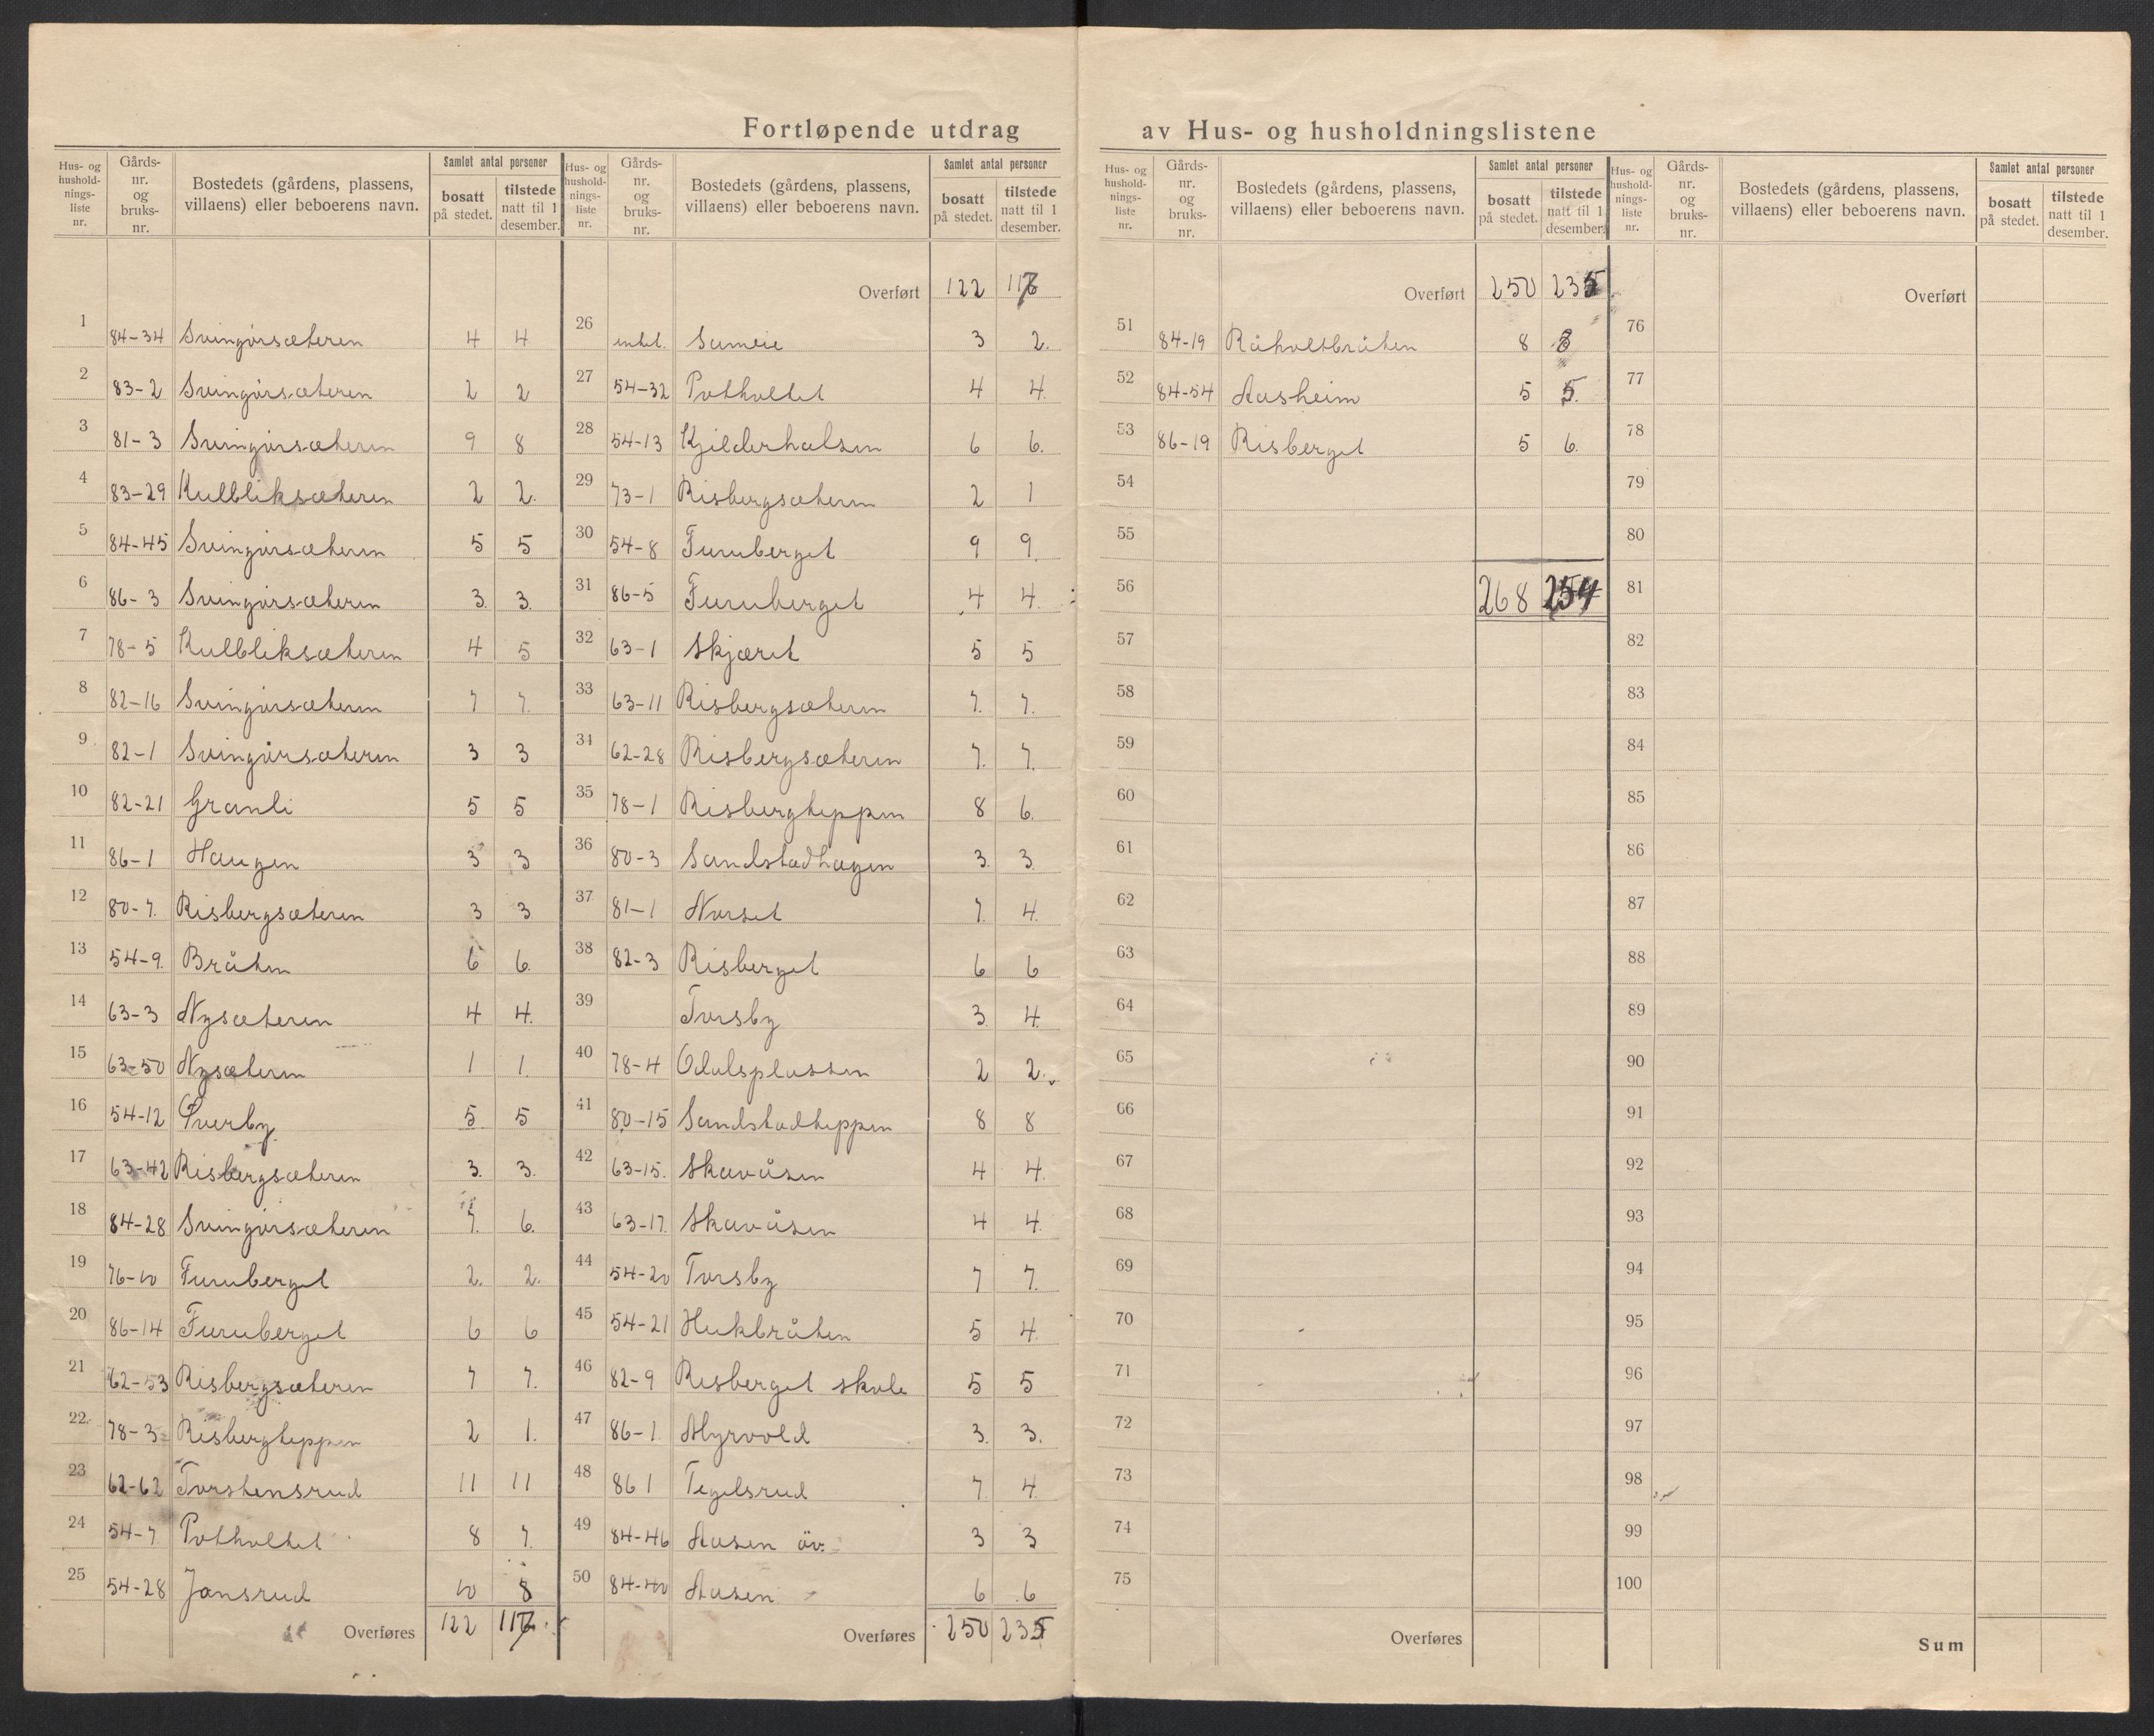 Fortløpende utdrag av Hus- og husholdningslistene
Hus- og hushold-nings-liste nr. | Gårds-nr. og bruks-nr. | Bostedets (gårdens, plassens, villaens) eller beboerens navn. | Samlet antal personer | bosatt på stedet. | tilstede natt til 1 desember.
1 84-34 Svingårsæteren 4 4
2 83-2 Svingårsæteren 2 2
3 81-3 Svingårsæteren 9 8
4 83-29 Kulbliksæteren 2 2.
5 84-45 Svingårsæteren 5 5
6 86-3 Svingårsæteren 3. 3.
7 78-5 Kulbliksæteren 4 5
8 82-16 Svingårsæteren 7 7.
9 82-1 Svingårsæteren 3 3
10 82-21 Granli 5 5
11 86-1 Haugen 3 3
12 80-7. Risbergsæteren 3 3
13 54-9. Bråten 6 6.
14 63-3 Nysæteren 4 4.
15 63-50 Nysæteren 1 1.
16 54-12 Sverby 5. 5
17 63-42 Risbergsæteren 3. 3.
18 84-28 Svingårsæteren 7. 6.
19 76-10 Furuberget 2. 2.
20 86-14 Furuberget 6 6
21 62-53 Risbergsæteren 7 7.
22 78-3 Risbergteppen 2 1.
23 62-62 Torstensrud 11 11
24 54-7 Potholtet 8 7.
25 54-28 Jansrud 10 8
Overføres 122 117
Hus- og hushold-nings-liste nr. | Gårds-nr. og bruks-nr. | Bostedets (gårdens, plassens, villaens) eller beboerens navn. | Samlet antal personer | bosatt på stedet. | tilstede natt til 1 desember.
Overført 122 117
26 Sameie 3 2.
27 54-32 Potholtet 4 4.
28 54-13 Kjilderhalsen 6 6.
29 73-1 Risbergsæteren 2 1
30 54-8 Furuberget 9 9.
31 86-5 Furuberget 4 4.
32 63-1 Skjæret 5 5
33 63-11 Risbergsæteren 7. 7.
34 62-28 Risbergsæteren 7. 7.
35 78-1 Risbergteppen 8 6.
36 80-3 Sandstadhagen 3. 3.
37 81-1 Norset 7. 4.
38 82-3 Risberget 6 6
39 Torsby 3. 4.
40 78-4 Odalsplassen 2 2.
41 80-15 Sandstadteppen 8 8
42 63-15. Skavåsen 4 4.
43 63-17. Skavåsen 4 4.
44 54-20 Torsby 7 7.
45 54-21 Hukbråten 5 4.
46 82-9 Risberget skole 5 5
47 86-1 Myrvold 3. 3.
48 86 1 Tegelsrud 7. 4.
49 84-46 Aasen öv. 3 3
50 84-40 Aasen 6 6
Overføres 250 235
Hus- og hushold-nings-liste nr. | Gårds-nr. og bruks-nr. | Bostedets (gårdens, plassens, villaens) eller beboerens navn. | Samlet antal personer | bosatt på stedet. | tilstede natt til 1 desember.
Overført 250 235
51 84-19 Råholtbråten 8 8
52 84-54 Aasheim 5 5.
53 86-19 Risberget 5 6.
54
55
56 268 254
57
58
59
60
61
62
63
64
65
66
67
68
69
70
71
72
73
74
75
Overføres
Hus- og hushold-nings-liste nr. | Gårds-nr. og bruks-nr. | Bostedets (gårdens, plassens, villaens) eller beboerens navn. | Samlet antal personer | bosatt på stedet. | tilstede natt til 1 desember.
Overført
76
77
78
79
80
81
82
83
84
85
86
87
88
89
90
91
92
93
94
95
96
97
98
99
100
Sum